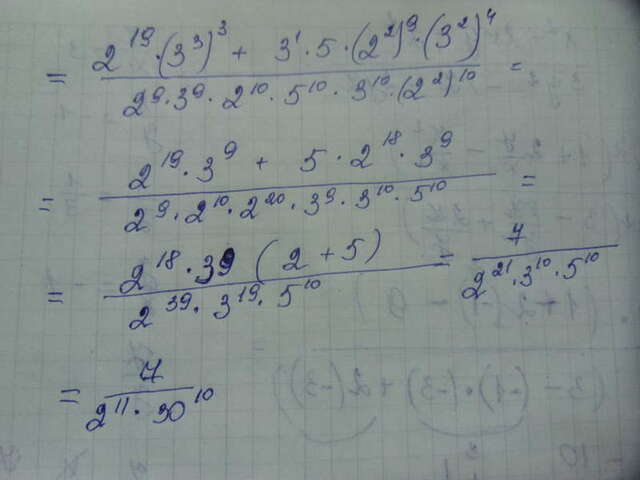 = (2^19 · (3^3)^3 + 3^1 · 5 · (2^2)^9 · (3^2)^4) / (2^9 · 3^9 · 2^10 · 5^10 · 3^10 · (2^2)^10) =
= (2^19 · 3^9 + 5 · 2^18 · 3^9) / (2^9 · 2^10 · 2^20 · 3^9 · 3^10 · 5^10) =
= (2^18 · 3^9 (2 + 5)) / (2^39 · 3^19 · 5^10) = 7 / (2^21 · 3^10 · 5^10)
= 7 / (2^11 · 30^10)